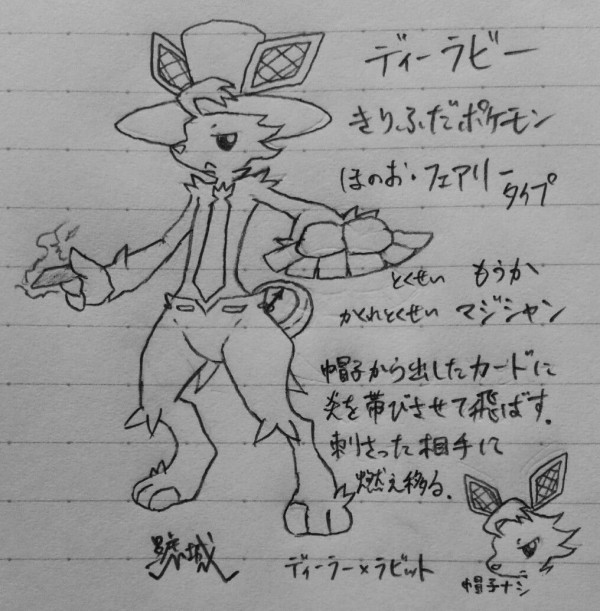 ディーラビー
きりふだポケモン
ほのお・フェアリー
タイプ
とくせい もうか
かくれとくせい マジシャン
帽子から出したカードに
炎を帯びさせて飛ばす。
刺さった相手に
燃え移る。
ディーラー×ラビット
帽子ナシ